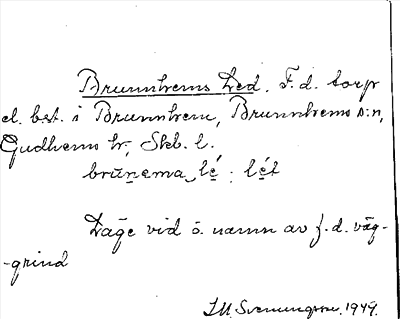 Brunnhems Led. F. d. torp
el. bst. i Brunnhem, Brunnhems sn,
Gudhems hd, Skb. l.
brūnema lé : lét
Läge vid o. namn av f.d. väg-
-grind
I M Svenungsson 1949.